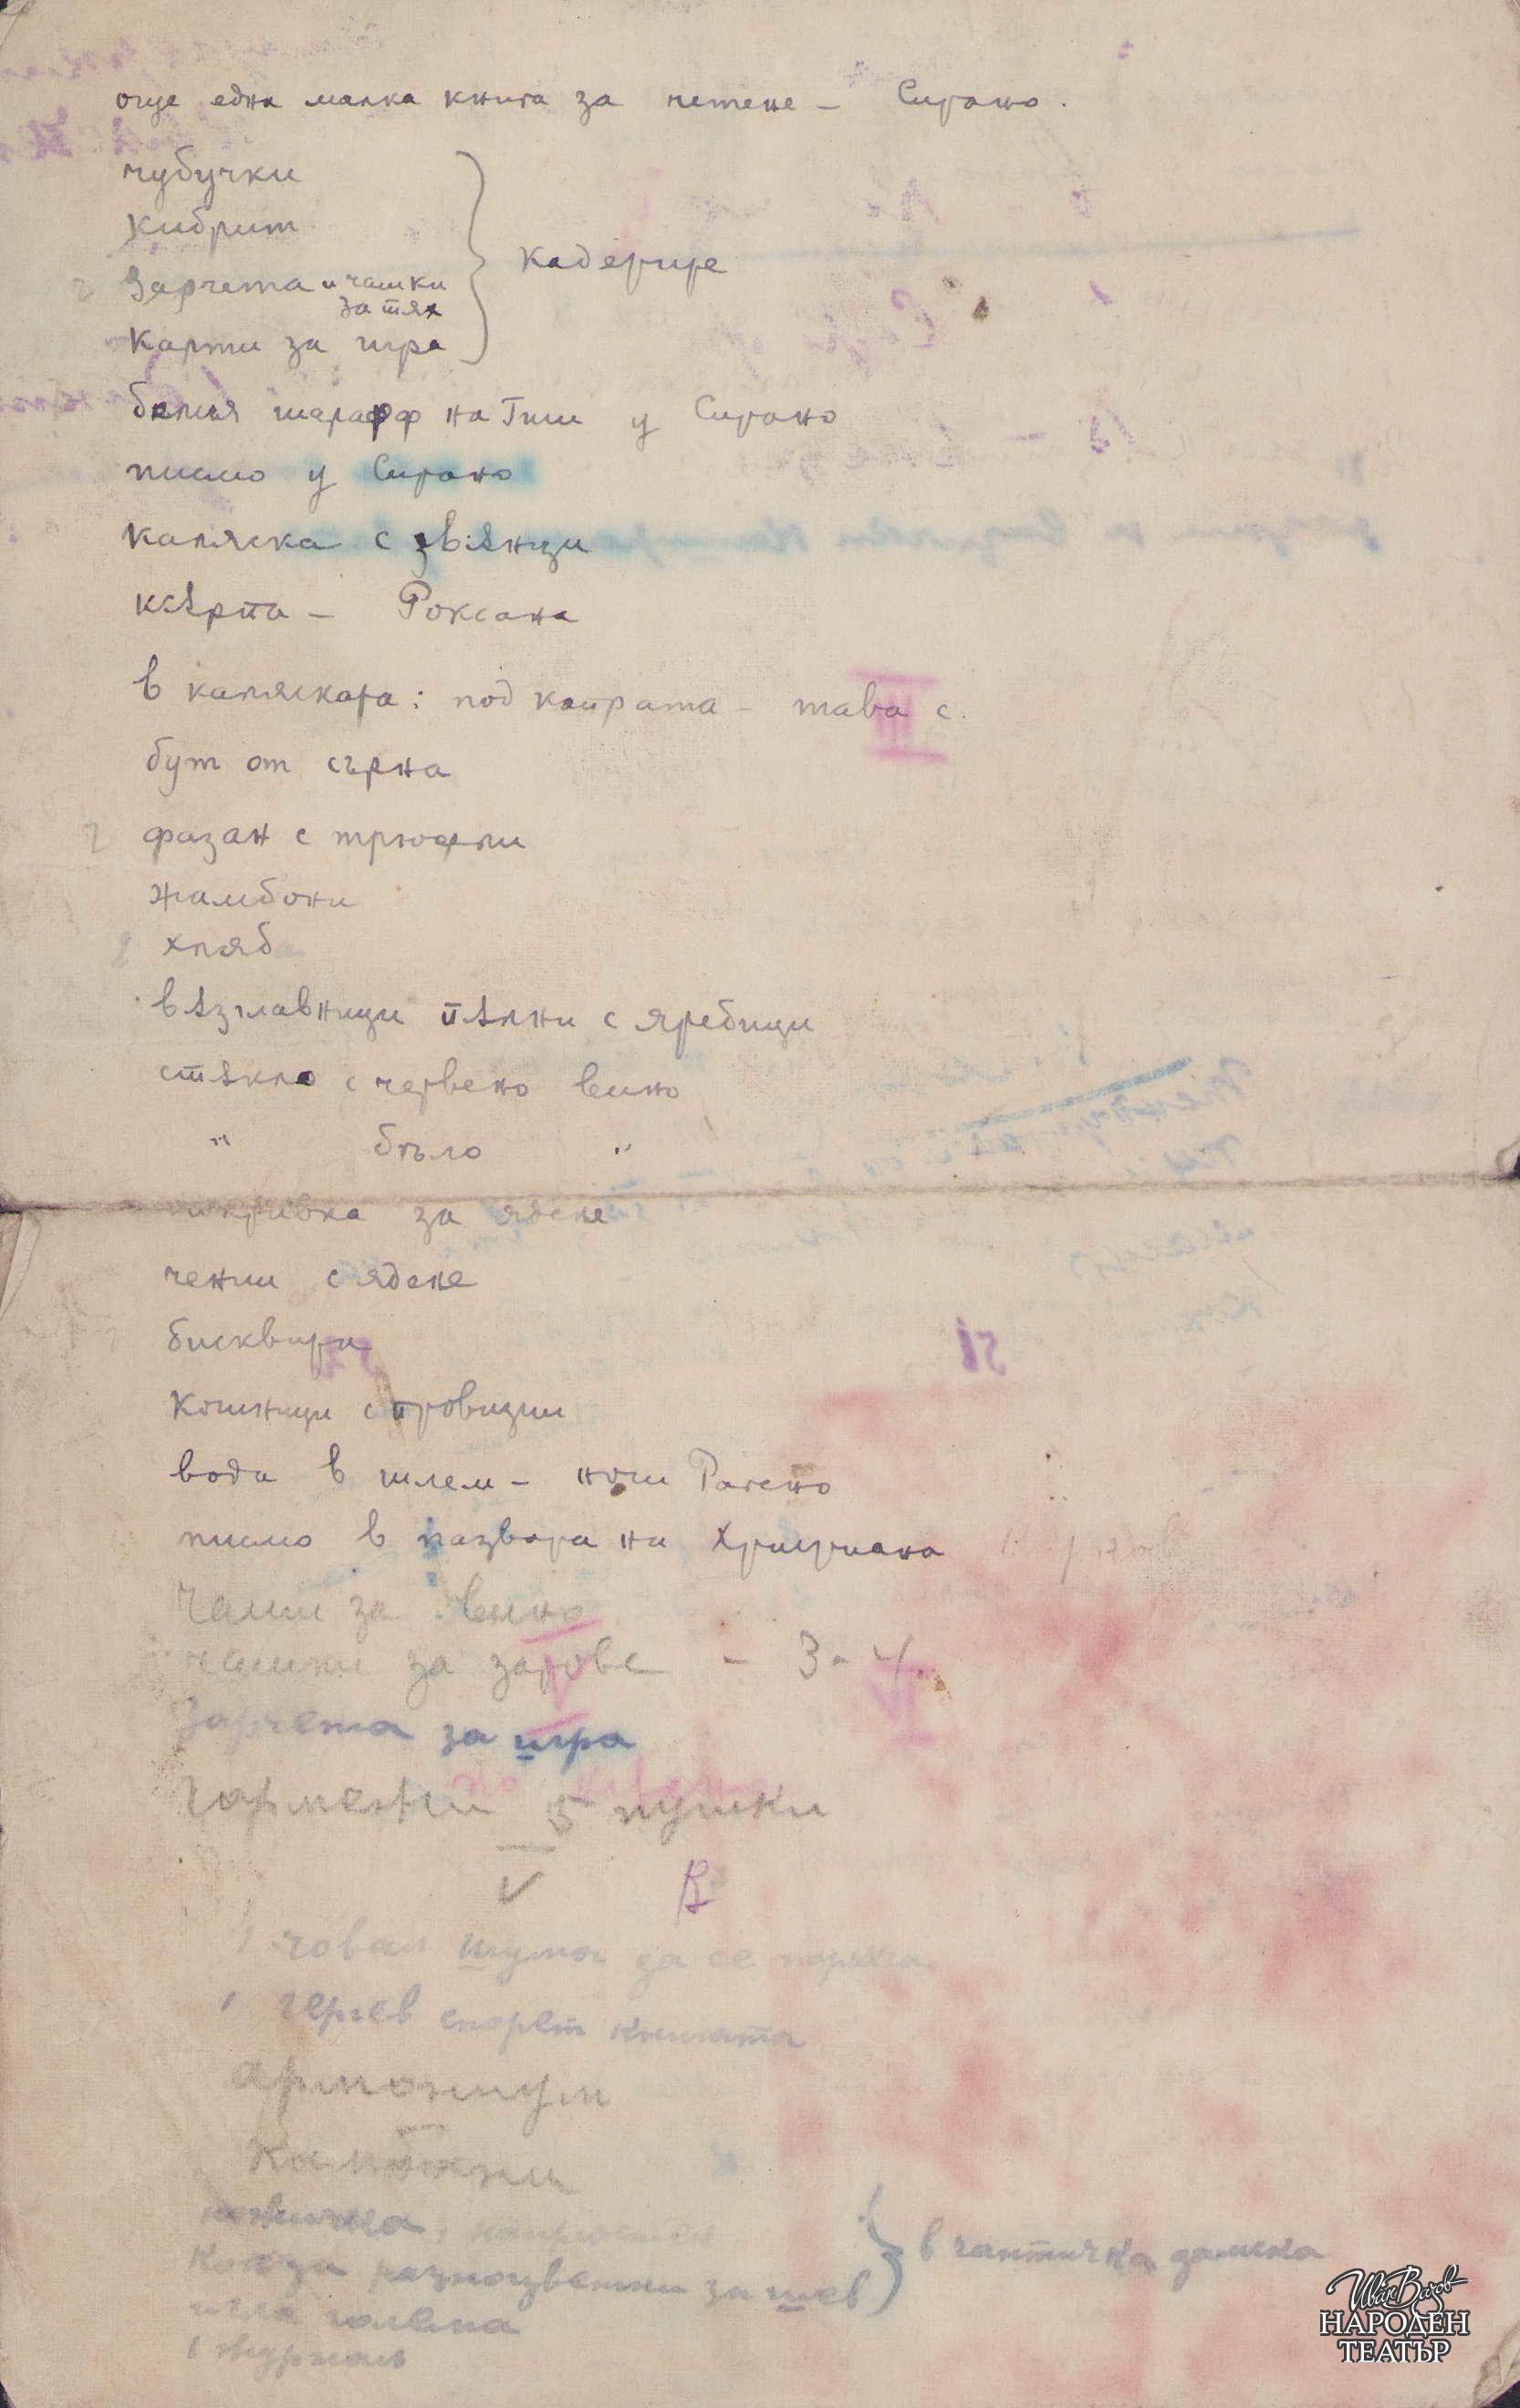 още една малка книга за четене – Сирано.
чубучки
кибрит
Зарчета и чашки
за тях
Карти за игра
Кадетите
белия шарфф на Гиш у Сирано
писмо у Сирано
каляска с звѫнци
кѫрпа – Роксана
в каляската: под капрата – тава с.
III
бут от сърна
фазан с трюфели
жамбони
хляб
вѫзглавници пѫлни с яребици
стѫкло с червено вино
" бѣло "
покривка за ядене
чении с ядене
бисквити
Кошници с провизии
вода в шлем – носи Рагено
писмо в пазвата на Християна
Чаши за вино
чашки за зарове – 3-4
Зарчета за игра
5 пушки
V
1 човал шума да се поръча
1 гергев според книгата
Армониум
Камбани
ножичка,
Конци разноцветни за шев
в чантичка дамска
игла голема
1 журнал
Иван Вазов
НАРОДЕН
ТЕАТЪР